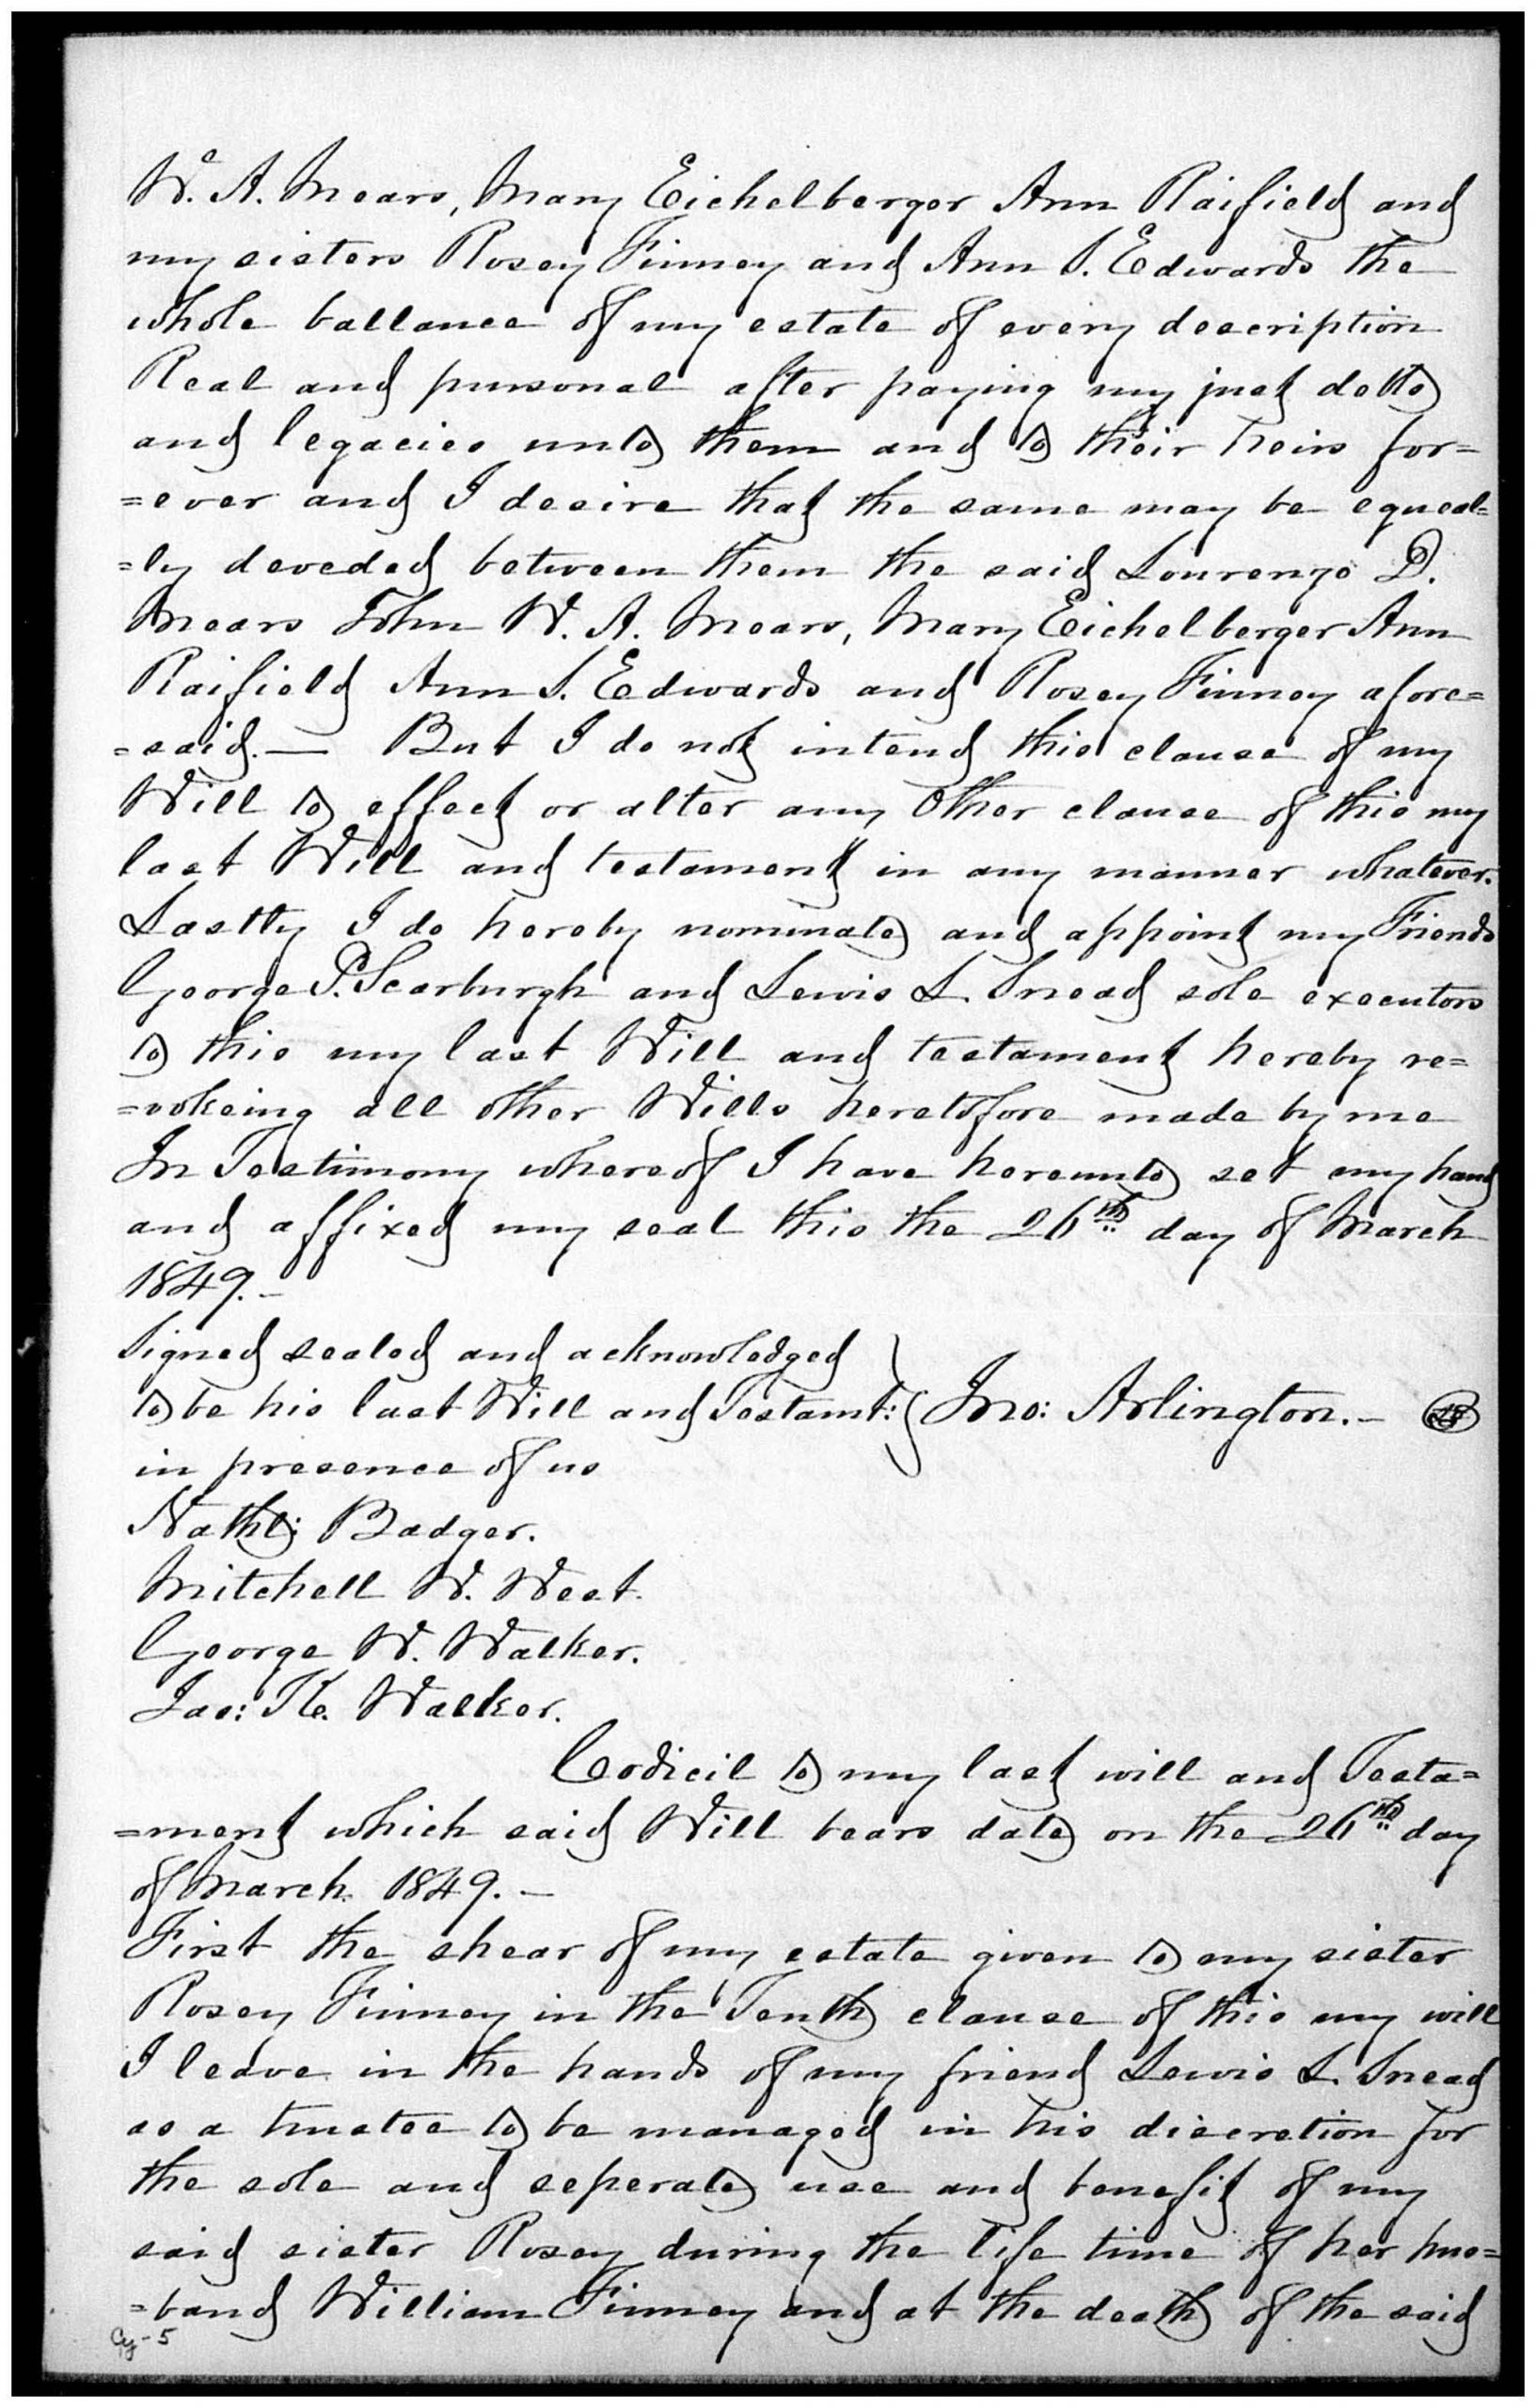 W. A. Mears, Mary Eichelberger Ann Raifield and
my sisters Rosey Finney and Ann S. Edwards the
whole ballance of my estate of every description
Real and pursonal after paying my just debts
and legacies unto them and to their heirs for=
=ever and I desire that the same may be equeal=
=ly deveded between them the said Lourenzo D.
Mears John W. A. Mears, Mary Eichelberger Ann
Raifield Ann S. Edwards and Rosey Finney afore=
=said. — But I do not intend this clause of my
Will to effect or alter any other clause of this my
last Will and testament in any manner whatever.
Lastly I do hereby nominate and appoint my Friends
George P. Scarburgh and Lewis L. Snead sole executors
to this my last Will and testament hereby re=
=vokeing all other Wills heretofore made by me
In Testimony whereof I have hereunto set my hand
and affixed my seal this the 26th day of March
1849. —
Signed sealed and acknowledged
to be his last Will and Testamt: Jno: Arlington. —
in presence of us
Nathl: Badger.
Mitchell W. West.
George W. Walker.
Jas: K. Walker.
Codicil to my last will and Testa=
=ment which said Will bears date on the 26th day
of March 1849. —
First the shear of my estate given to my sister
Rosey Finney in the Tenth clause of this my will
I leave in the hands of my friend Lewis L. Snead
as a trustee to be managed in his discretion for
the sole and seperate use and benefit of my
said sister Rosey during the life time of her hus=
=band William Finney and at the death of the said